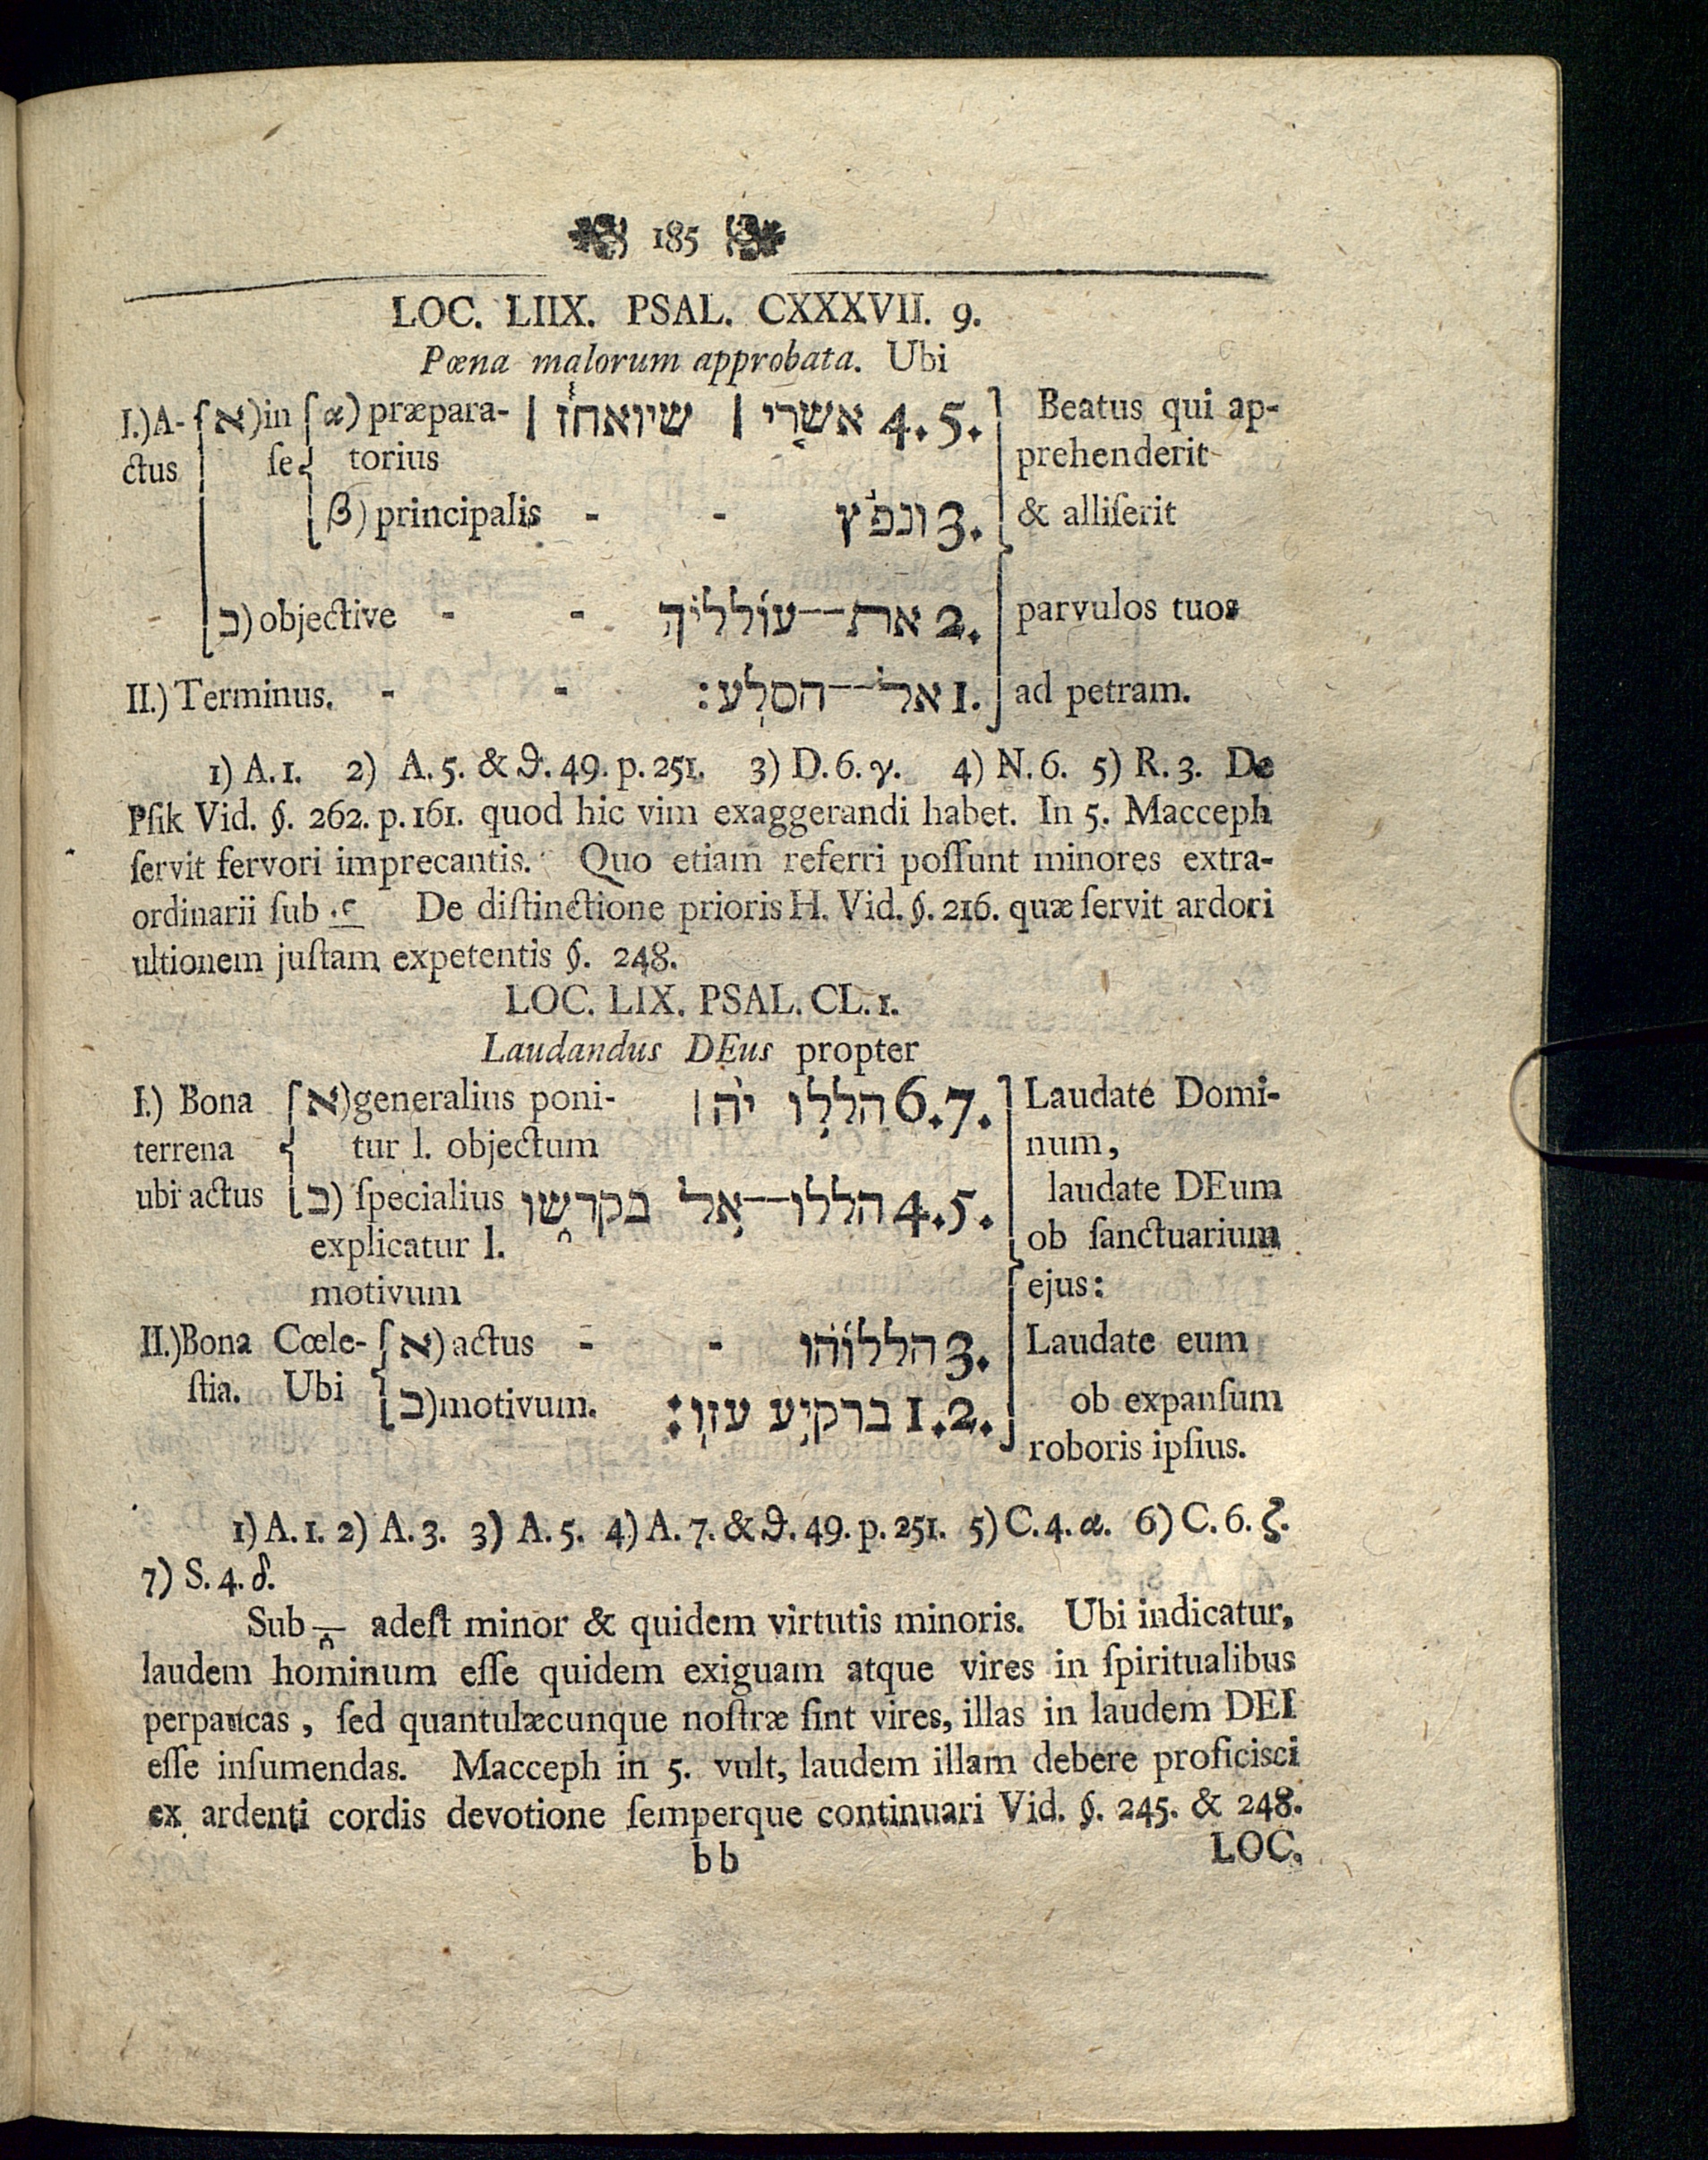 185
LOC. LIIX. PSAL. CXXXVII. 9.
Pœna malorum approbata. Ubi
I.) A- א) in α) præpara- 4.5. אשרי | שיואחז | Beatus qui ap-
ctus ſe torius prehenderit
β) principalis - - 3. ונפץ & alliſerit
ב) objective - - 2. את--עולליך parvulos tuos
II.) Terminus. - - 1. אל--הסלע: ad petram.
1) A. 1. 2) A. 5. & ϑ. 49. p. 251. 3) D. 6. γ. 4) N. 6. 5) R. 3. De
Pſik Vid. §. 262. p. 161. quod hic vim exaggerandi habet. In 5. Macceph
ſervit fervori imprecantis. Quo etiam referri poſſunt minores extra-
ordinarii ſub De diſtinctione prioris H. Vid. §. 216. quæ ſervit ardori
ultionem juſtam expetentis §. 248.
LOC. LIX. PSAL. CL. 1.
Laudandus DEus propter
I.) Bona א) generalius poni- 6.7. הללו יה | Laudate Domi-
terrena tur l. objectum num,
ubi actus ב) ſpecialius 4.5. הללו--אל בקדשו laudate DEum
explicatur l. ob ſanctuarium
motivum ejus:
II.) Bona Cœle- א) actus - - 3. הללוהו Laudate eum
ſtia. Ubi ב) motivum. 1.2. ברקיע עזו: ob expanſum
roboris ipſius.
1) A. 1. 2) A. 3. 3) A. 5. 4) A. 7. & ϑ. 49. p. 251. 5) C. 4. α. 6) C. 6. ζ.
7) S. 4. δ.
Sub adeſt minor & quidem virtutis minoris. Ubi indicatur,
laudem hominum eſſe quidem exiguam atque vires in ſpiritualibus
perpaucas, ſed quantulæcunque noſtræ ſint vires, illas in laudem DEI
eſſe inſumendas. Macceph in 5. vult, laudem illam debere proficisci
ex ardenti cordis devotione ſemperque continuari Vid. §. 245. & 248.
bb LOC.